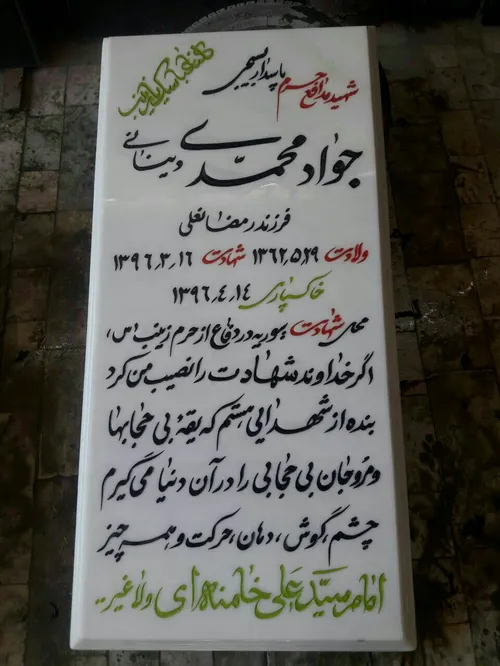 کلنا عباسک یا زینب
شهید مدافع حرم پاسدار بسیجی
جواد محمدی دینانی
فرزند رمضانعلی
ولادت ۱۳۶۲٫۵٫۲۹ شهادت ۱۳۹۶٫۳٫۱۶
خاکسپاری ۱۳۹۶٫۴٫۱۴
محل شهادت سوریه در دفاع از حرم زینب س،
اگر خداوند شهادت را نصیب من کرد
بنده از شهدایی هستم که یقهٔ بی حجابها
و مروجان بی حجابی را در آن دنیا می گیرم
چشم، گوش، دهان، حرکت و همه چیز
امام سید علی خامنه ای ولاغیر..